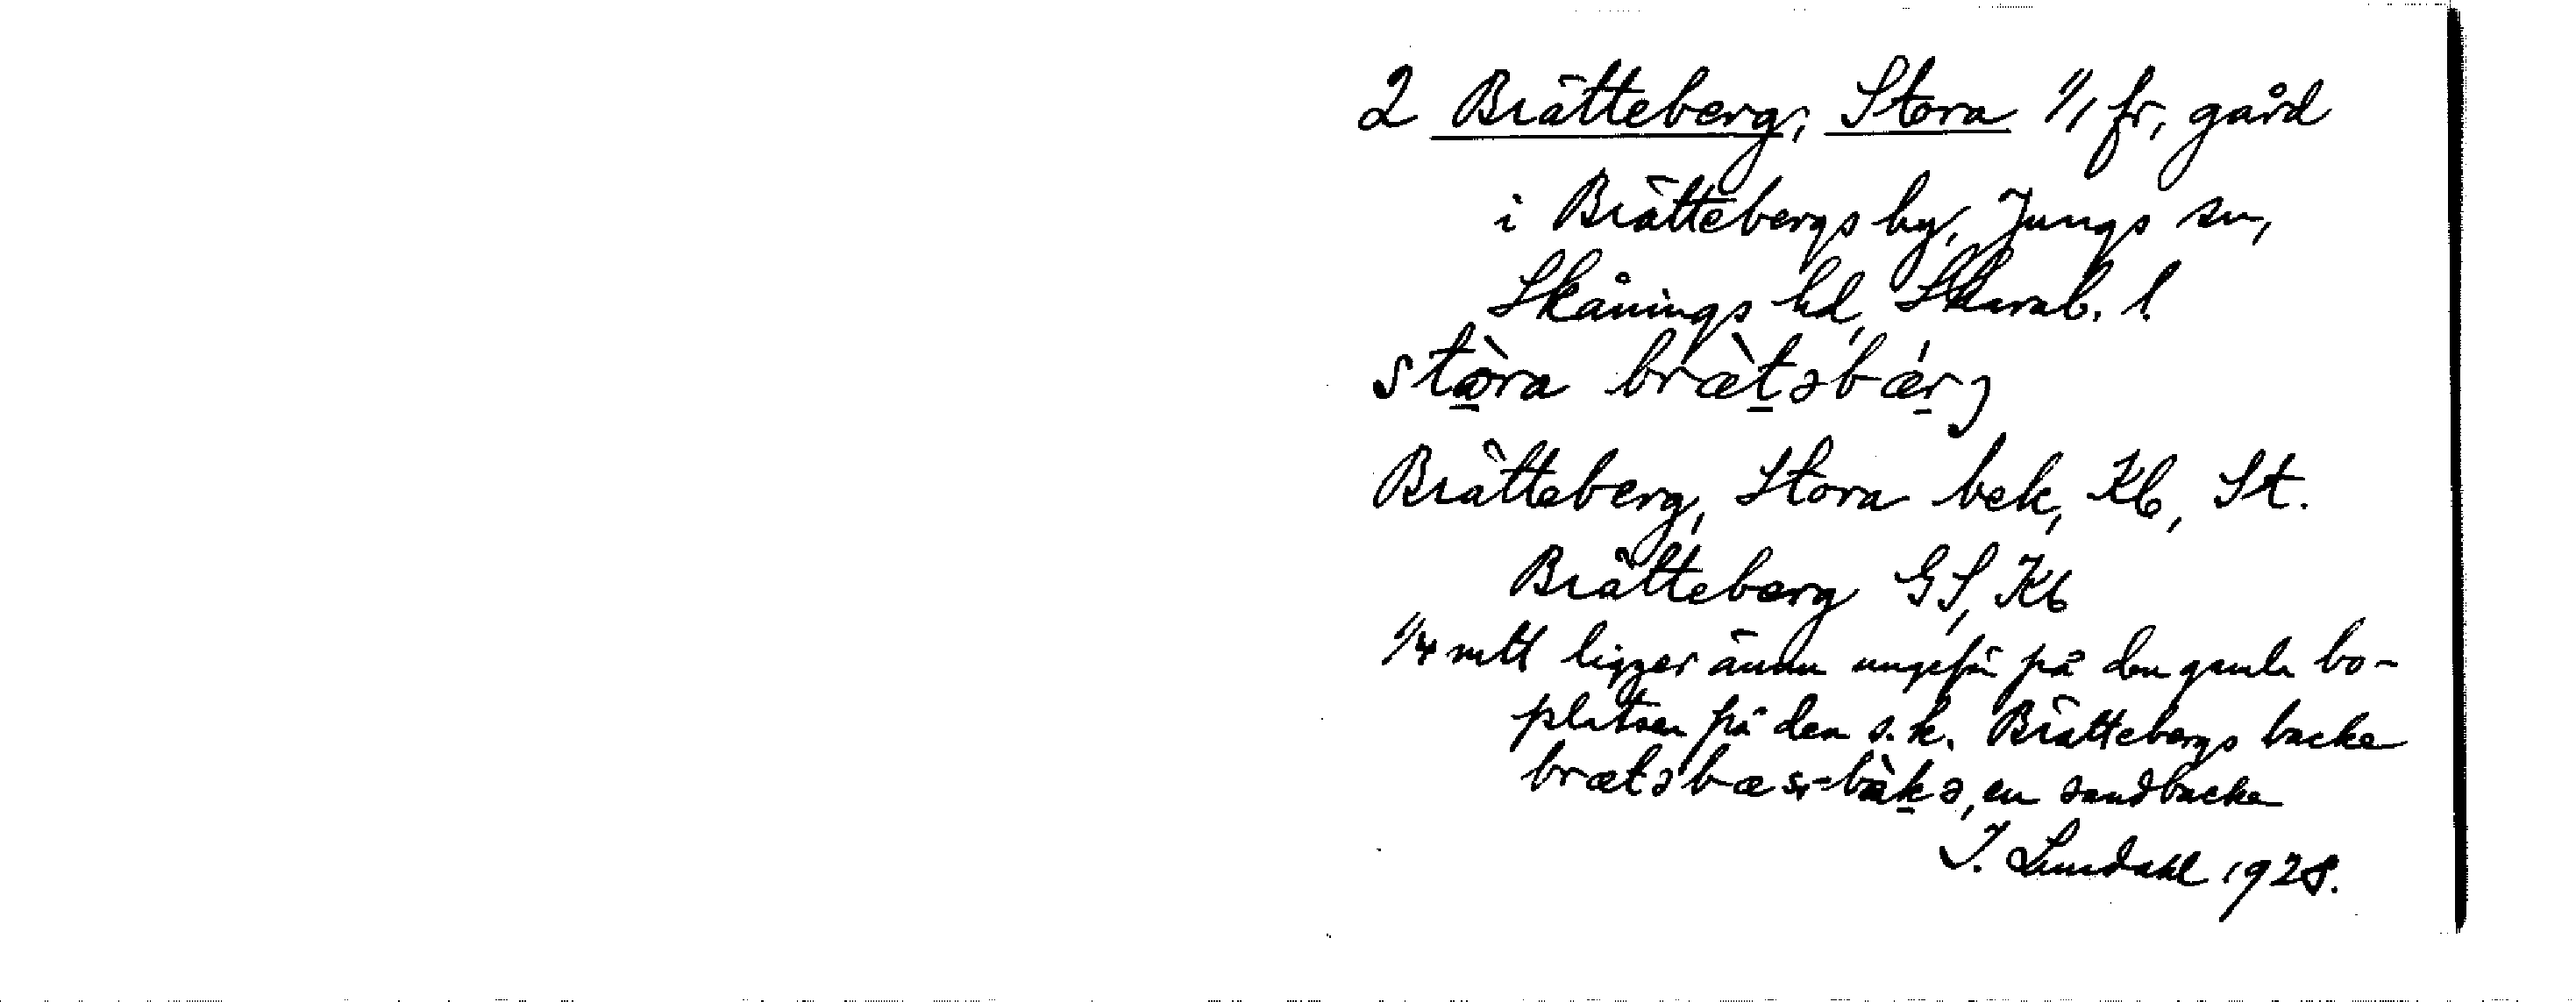 2 Brätteberg, Stora 1/1 fr, gård
i Brättebergs by, Jungs sn,
Skånings hd, Skarab. l.
stòra brætəbærj
Brätteberg, Stora bek, Kb, St.
Brätteberg GS, Kb
1/4 mtl ligger ännu ungefär på den gamla bo-
platsen på den s.k. Brättebergs backe
brætəbæs-bàkə, en sandbacke
J. Lundahl 1928.